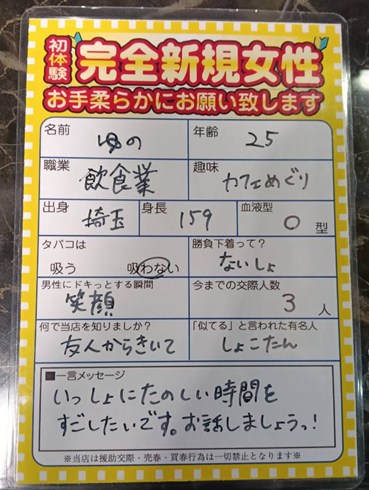 初体験
完全新規女性
お手柔らかにお願い致します
名前 ゆの 年齢 25
職業 飲食業 趣味 カフェめぐり
出身 埼玉 身長 159 血液型 O型
タバコは 吸う 吸わない 勝負下着って? ないしょ
男性にドキっとする瞬間 笑顔 今までの交際人数 3人
何で当店を知りましたか? 友人からきいて 「似てる」と言われた有名人 しょこたん
■一言メッセージ
いっしょにたのしい時間を
すごしたいです。お話しましょうっ!
※当店は援助交際・売春・買春行為は一切禁止となります※